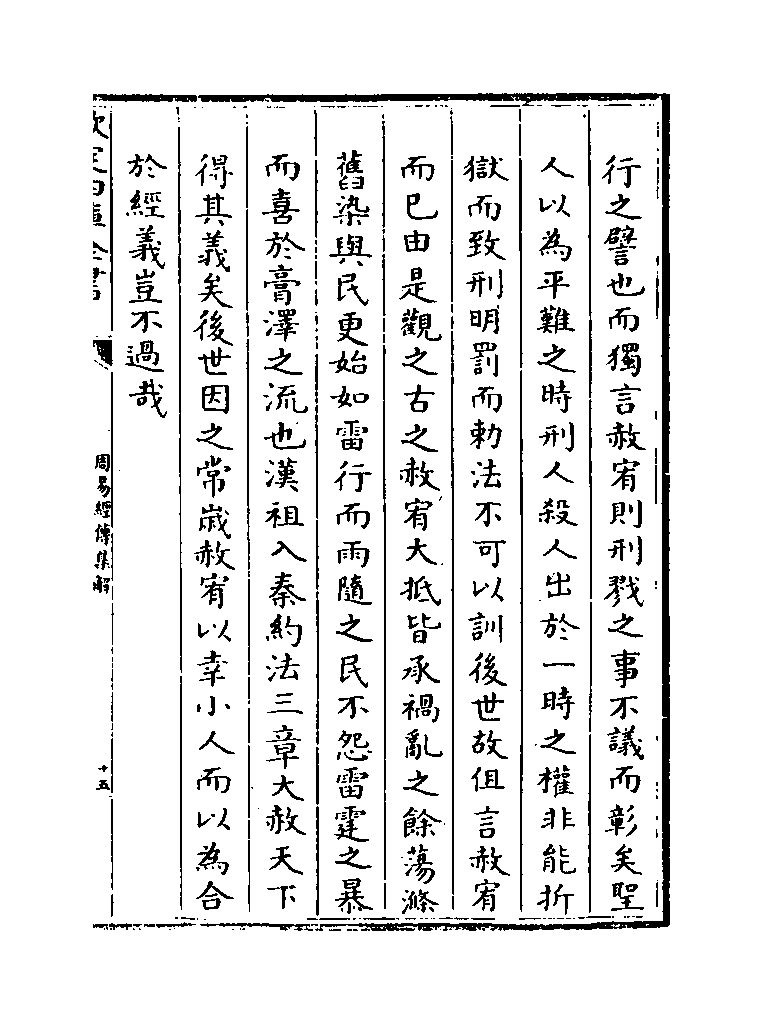 行之譬也而獨言赦宥則刑戮之事不議而彰矣聖
人以為平難之時刑人殺人出於一時之權非能折
獄而致刑明罰而勅法不可以訓後世故但言赦宥
而已由是觀之古之赦宥大抵皆承禍亂之餘蕩滌
舊染與民更始如雷行而雨隨之民不怨雷霆之暴
而喜於膏澤之流也漢祖入秦約法三章大赦天下
得其義矣後世因之常歲赦宥以幸小人而以為合
於經義豈不過哉
欽定四庫全書
周易經傳集解
十五